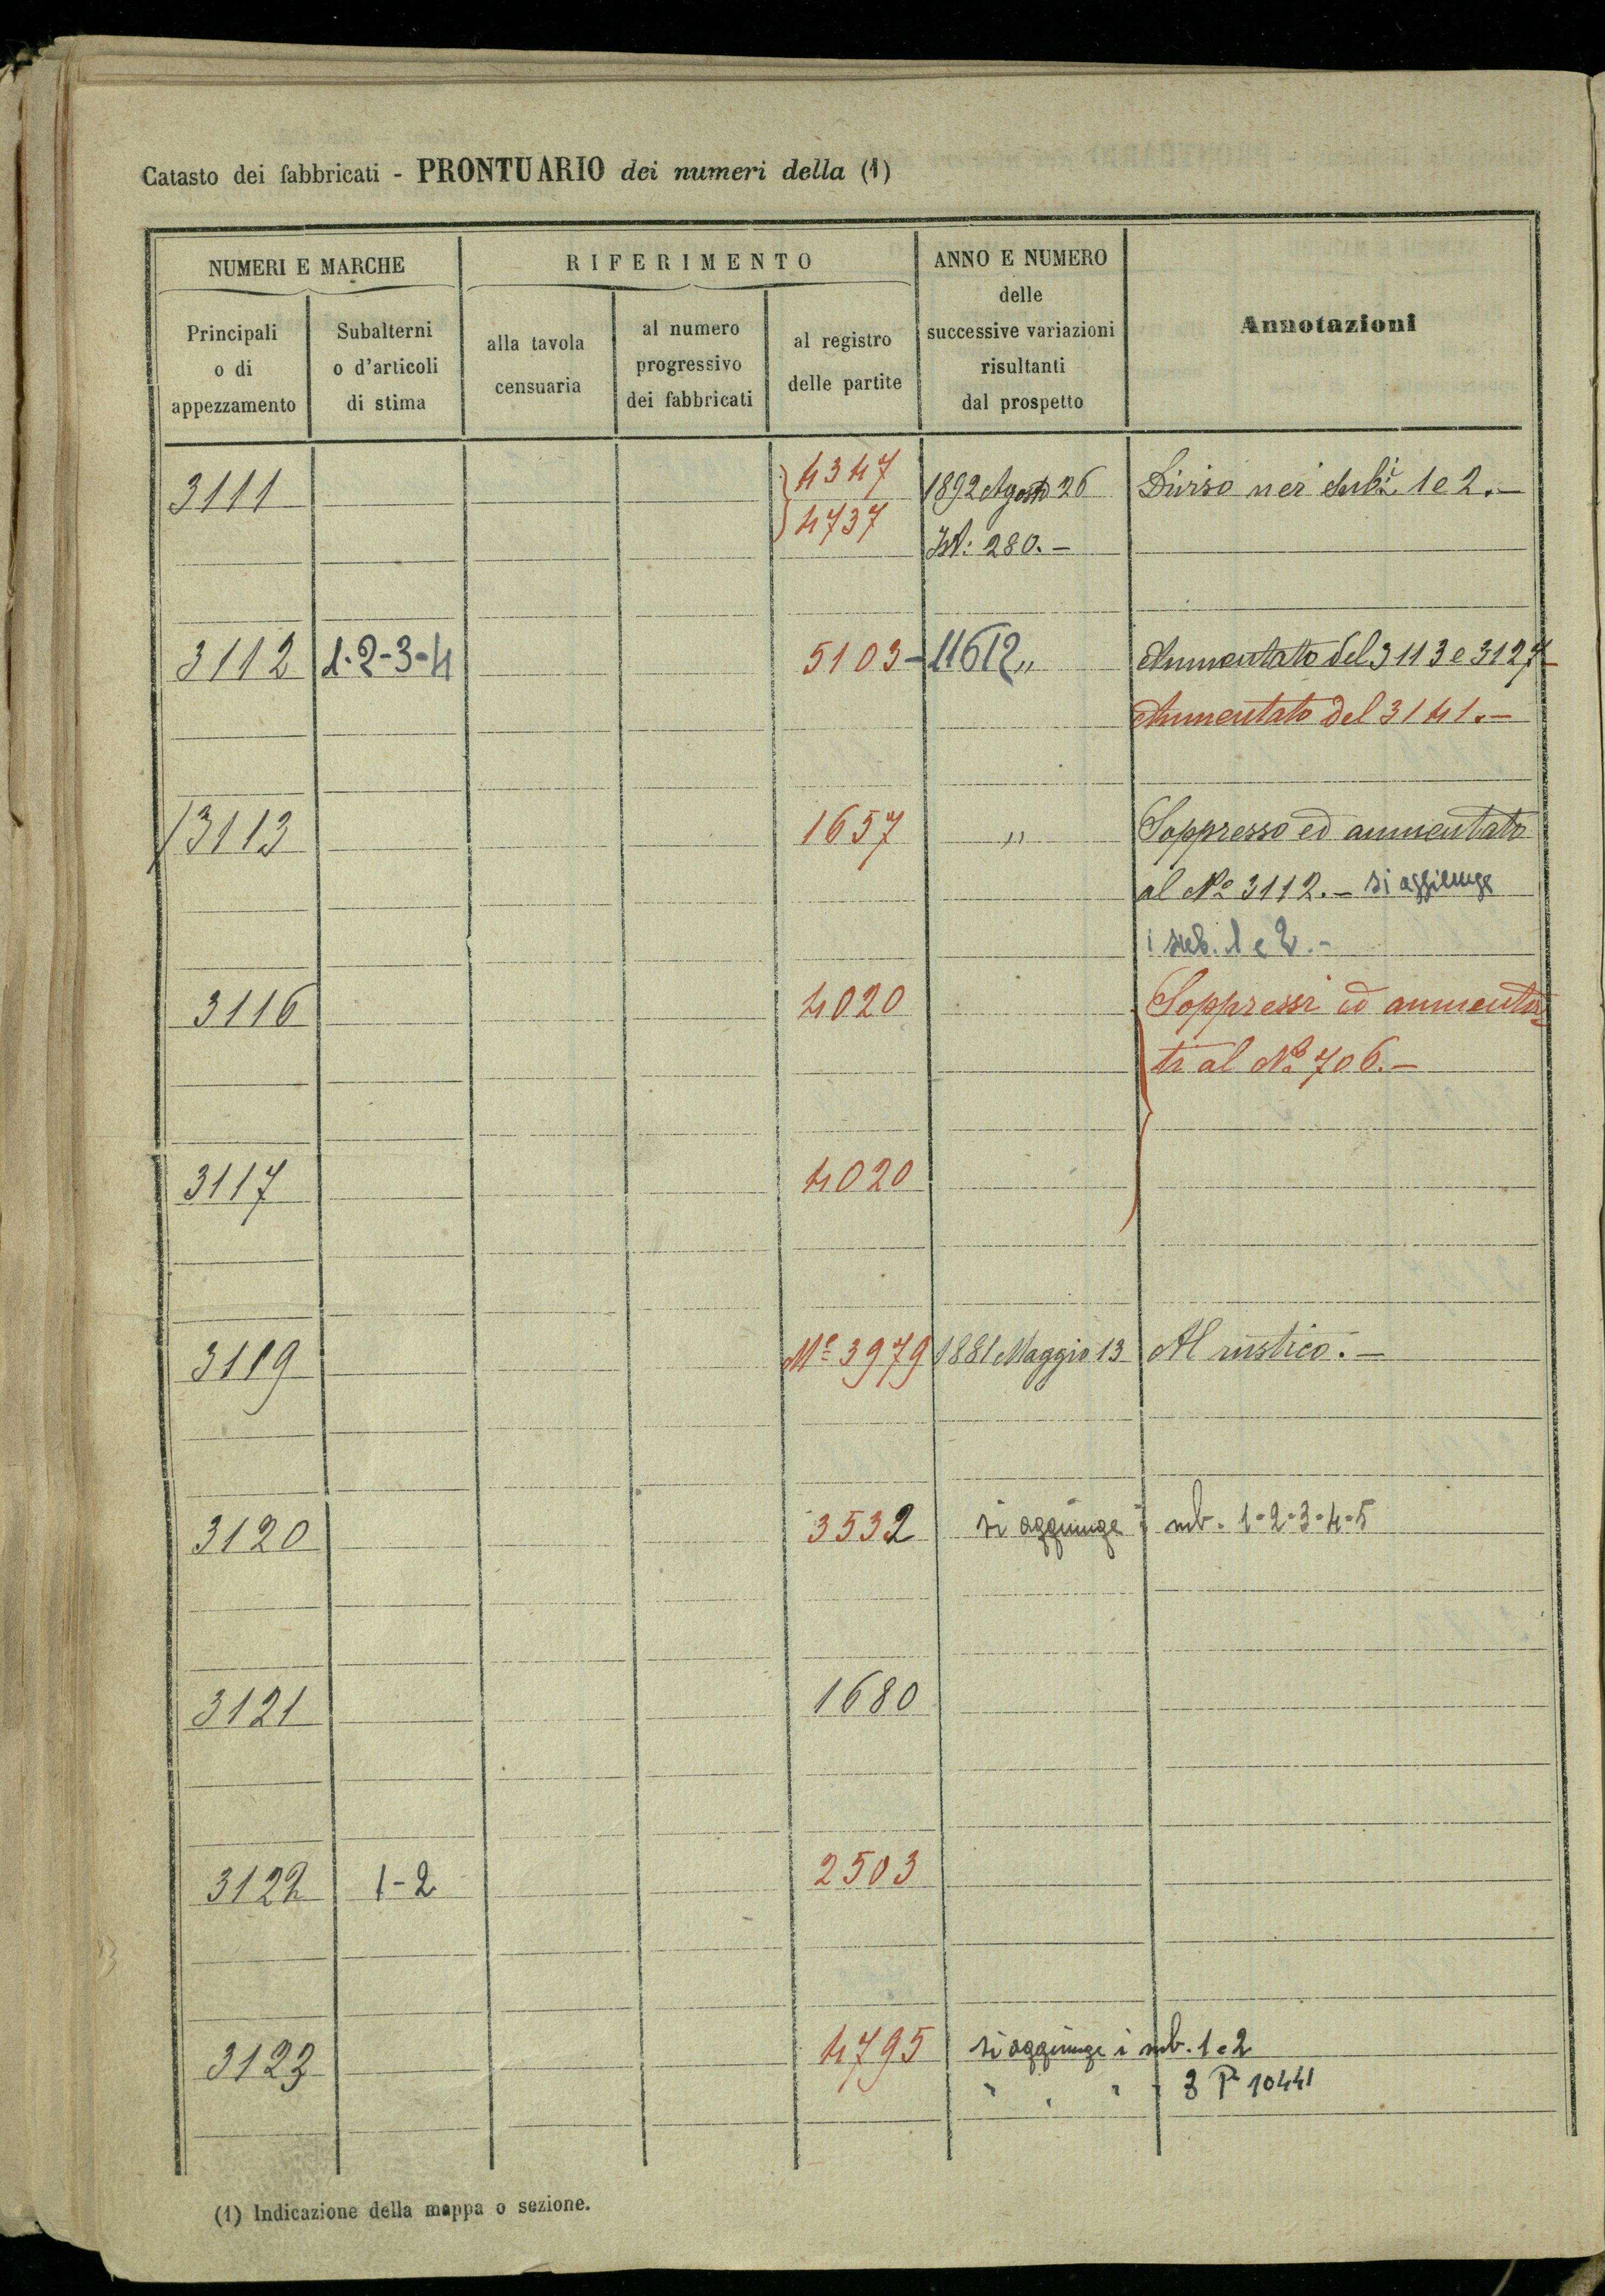 Catasto dei fabbricati - PRONTUARIO dei numeri della (1)
NUMERI E MARCHE
RIFERIMENTO
ANNO E NUMERO
delle
successive variazioni
risultanti
dal prospetto
Annotazioni
Principali
o di
appezzamento
Subalterni
o d'articoli
di stima
alla tavola
censuaria
al numero
progressivo
dei fabbricati
al registro
delle partite
3111 4347 1892 Agosto 26 Diviso nei Sub.i 1 e 2.-
4737
N: 280.-
3112 1-2-3-4 5103-11612 " Aumentato del 3113 e 3127
Aumentato del 3141.-
3113 1657 " Soppresso ed aumentato
al No 3112.- si aggiunge
i sub. 1 e 2.-
3116 4020 Soppressi ed aumenta
ti al No 706.-
3117 4020
3119 Me 3979 1881 Maggio 13 Al rustico.-
3120 3532 si aggiunge i sub. 1-2-3-4-5
3121 1680
3122 1-2 2503
3123 4795 si aggiunge i sub. 1 e 2
" " " " 3 Pa 10441
(1) Indicazione della mappa o sezione.